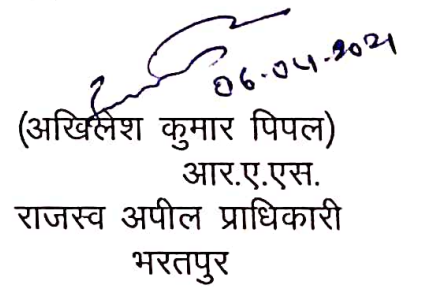 06.04.2021
(अखिलेश कुमार पिपल)
आर.ए.एस.
राजस्व अपील प्राधिकारी
भरतपुर